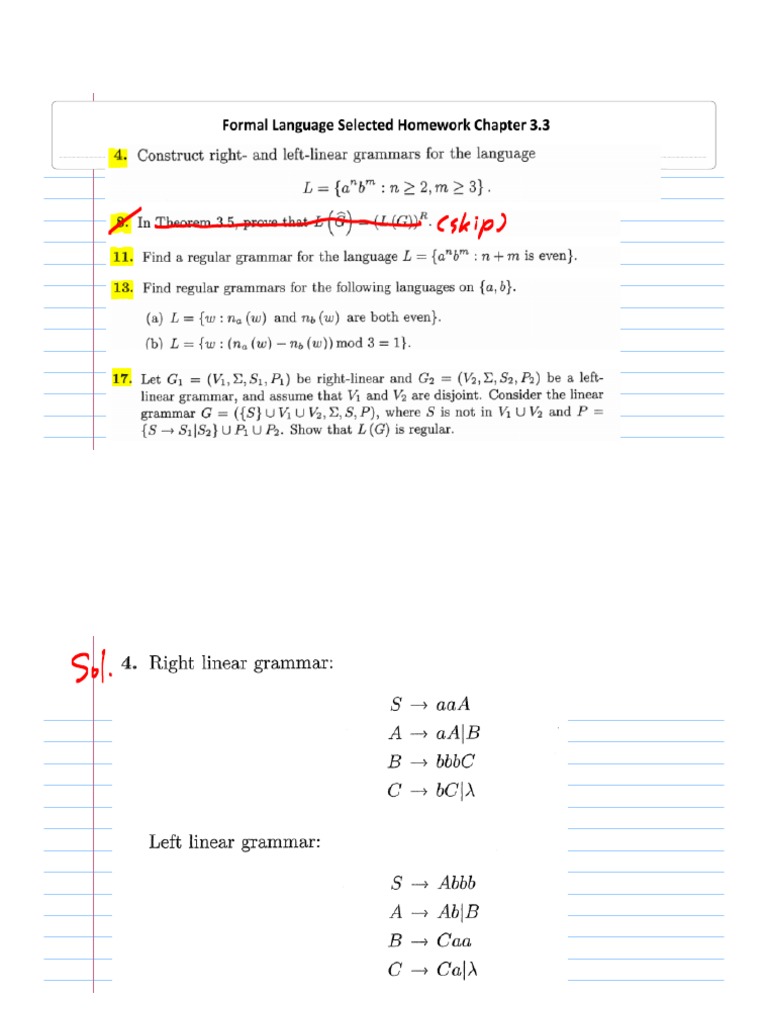 Formal Language Selected Homework Chapter 3.3
4. Construct right- and left-linear grammars for the language
L = {aⁿbᵐ : n ≥ 2, m ≥ 3} .
8. In Theorem 3.5, prove that L(Ĝ) = (L (G))ᴿ. (skip)
11. Find a regular grammar for the language L = {aⁿbᵐ : n + m is even}.
13. Find regular grammars for the following languages on {a, b}.
(a) L = {w : nₐ (w) and n_b (w) are both even}.
(b) L = {w : (nₐ (w) − n_b (w)) mod 3 = 1}.
17. Let G₁ = (V₁, Σ, S₁, P₁) be right-linear and G₂ = (V₂, Σ, S₂, P₂) be a left-
linear grammar, and assume that V₁ and V₂ are disjoint. Consider the linear
grammar G = ({S} ∪ V₁ ∪ V₂, Σ, S, P), where S is not in V₁ ∪ V₂ and P =
{S → S₁|S₂} ∪ P₁ ∪ P₂. Show that L (G) is regular.
Sol. 4. Right linear grammar:
S → aaA
A → aA|B
B → bbbC
C → bC|λ
Left linear grammar:
S → Abbb
A → Ab|B
B → Caa
C → Ca|λ